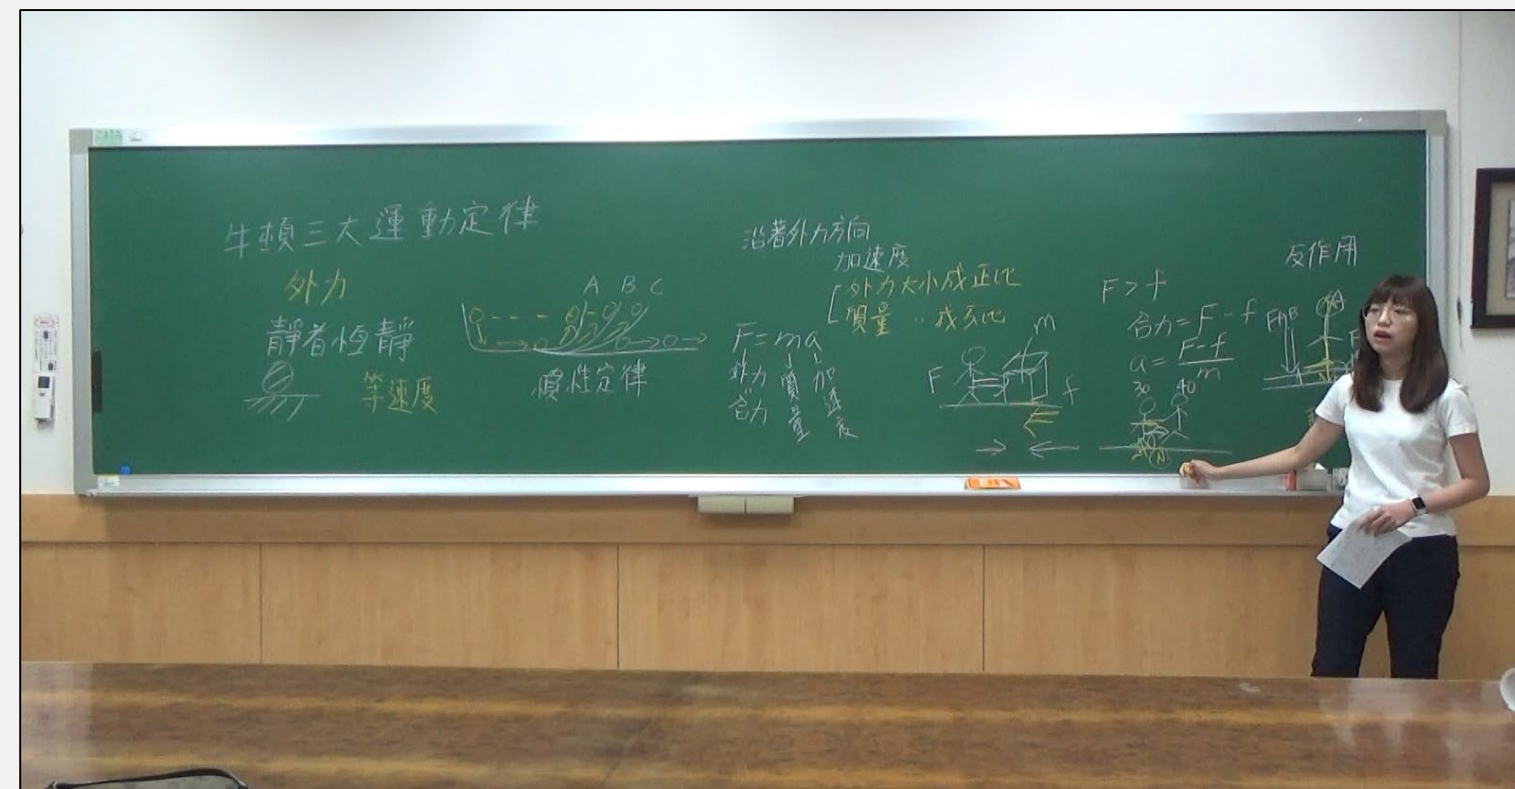 牛頓三大運動定律
外力
靜者恆靜
等速度
A B C
慣性定律
沿著外力方向
加速度
外力大小成正比
質量 〃 成反比
F=ma
外力
合力
質量
加速度
m
F
f
F>f
合力=F-f
a=F-f/m
30 40
反作用
A